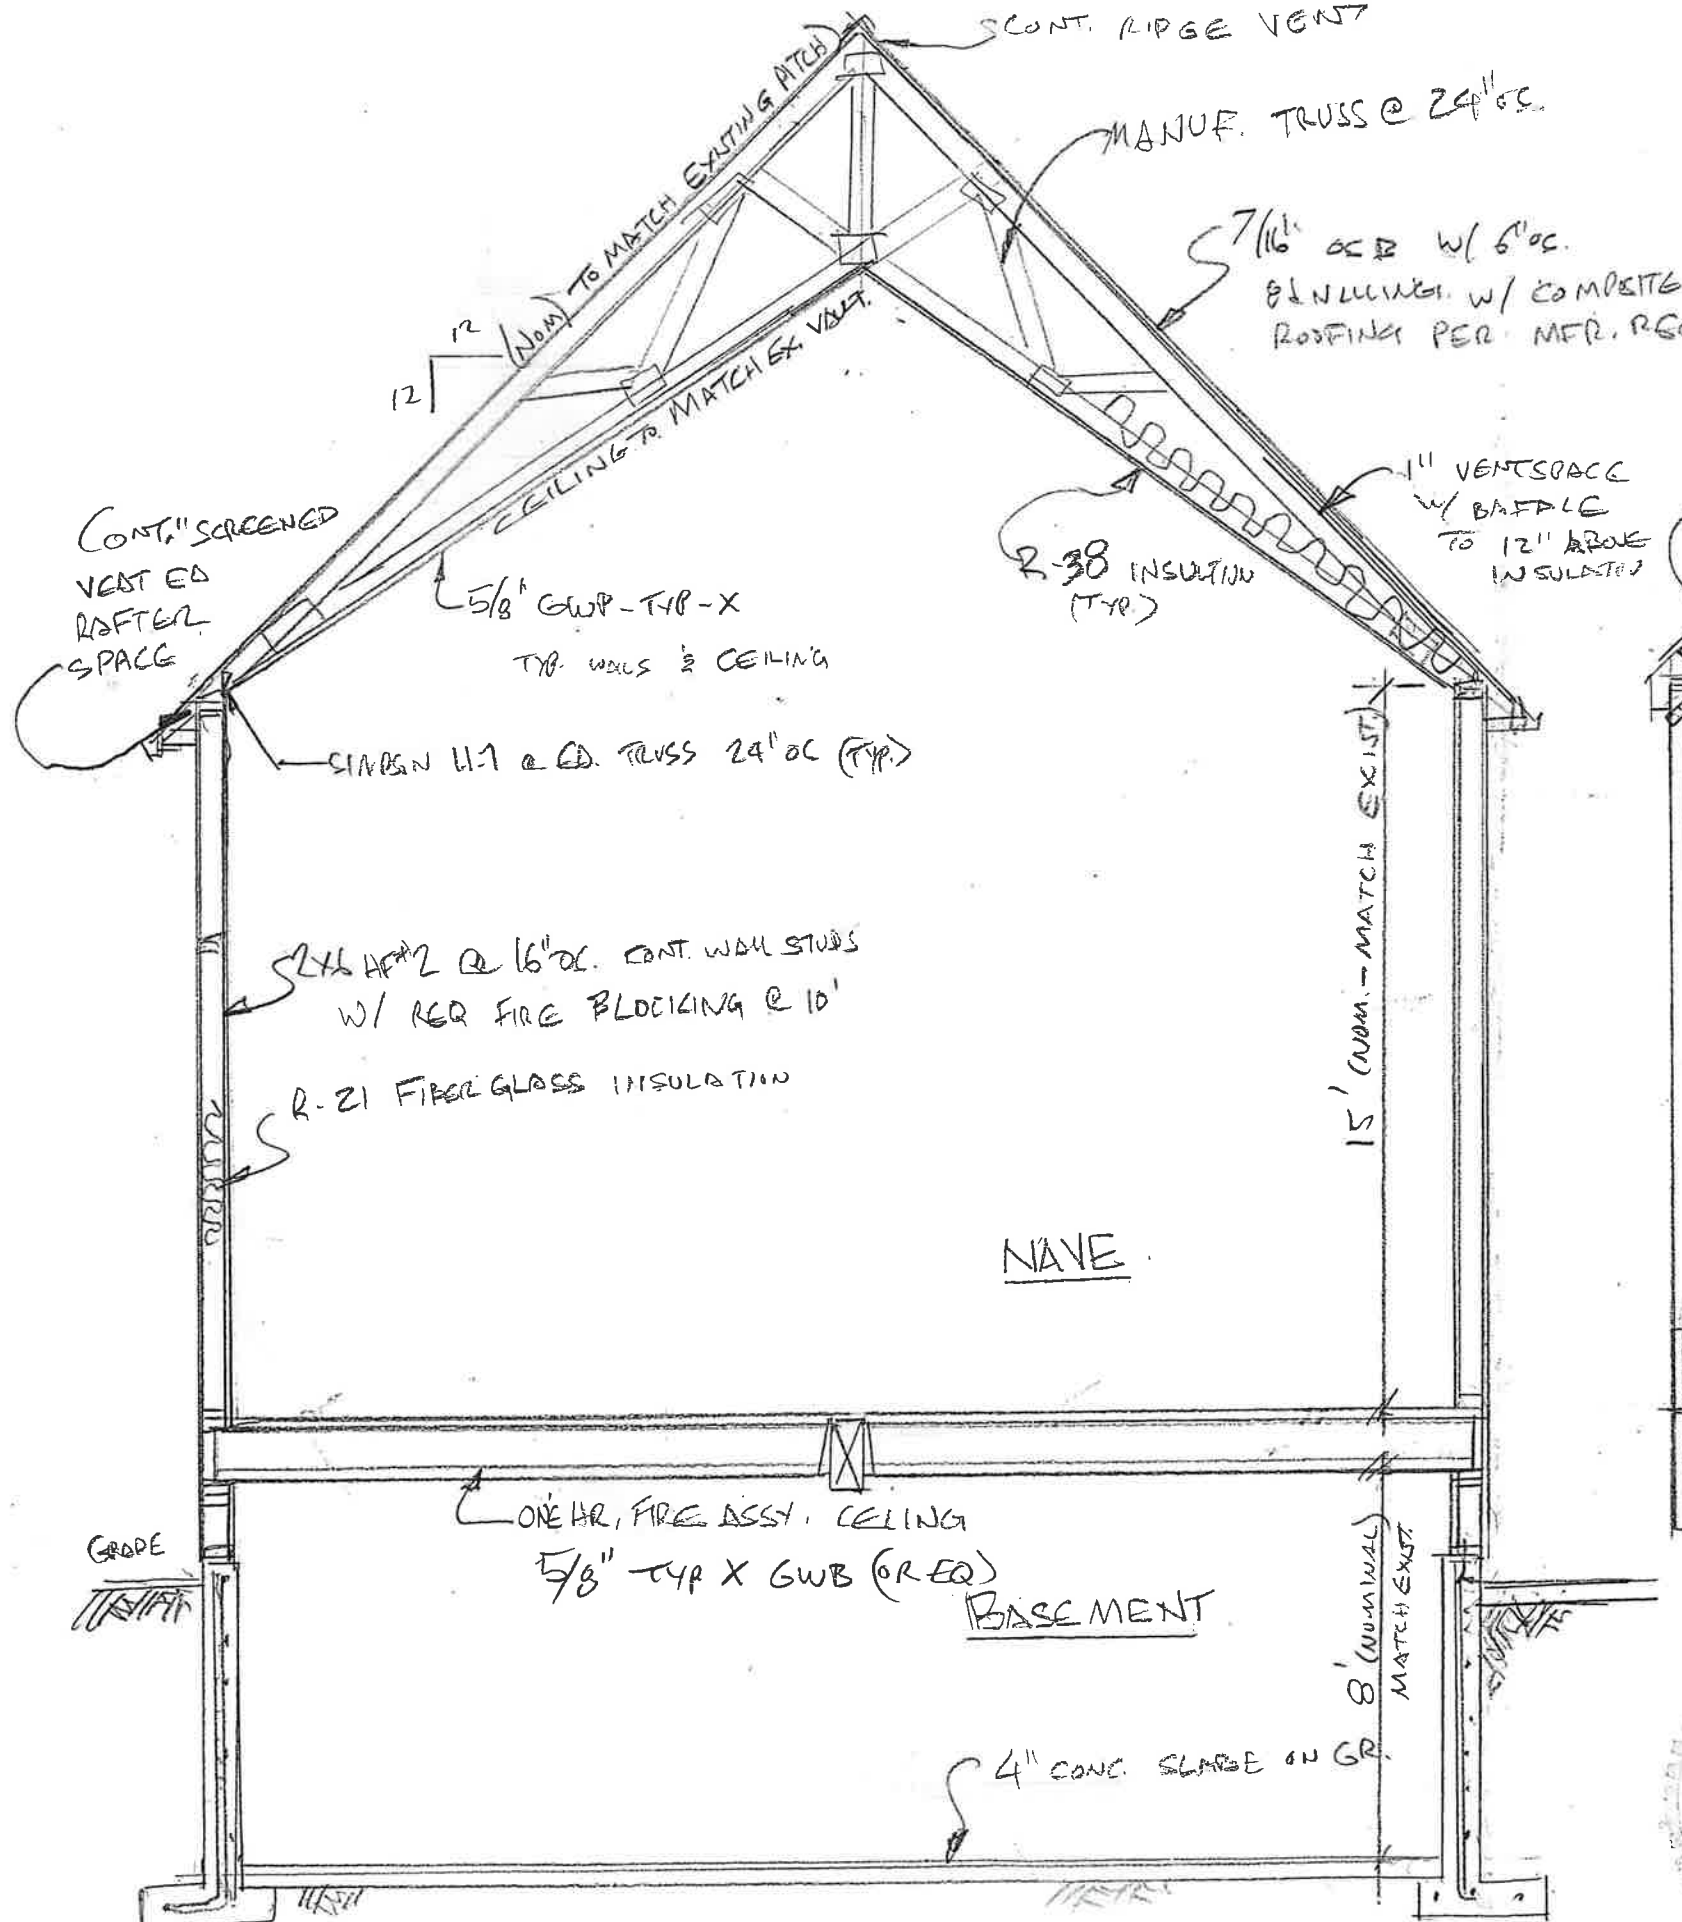 CONT. RIDGE VENT
MANUF. TRUSS @ 24" OC.
7/16" OSB W/ 6" OC.
W/ COMPOSITE
ROOFING PER MFR. REC
12
12
(NOM) TO MATCH EXISTING PITCH
CEILING TO MATCH EX. VAULT.
1" VENTSPACE
W/ BAFFLE
TO 12" ABOVE
INSULATION
R-38 INSULTION
(TYP.)
CONT. SCREENED
VENTED
RAFTER
SPACE
5/8" GWB-TYP-X
TYP. WALLS & CEILING
SIMPSON H-1 @ EA. TRUSS 24" OC (TYP.)
15' (NOM. - MATCH EXIST.)
2X6 HF#2 @ 16" OC. CONT. WALL STUDS
W/ REQ FIRE BLOCKING @ 10'
R-21 FIBERGLASS INSULATION
NAVE
ONE HR. FIRE ASSY. CEILING
5/8" TYP X GWB (OR EQ)
GRADE
BASEMENT
8' (NOMINAL)
MATCH EXIST.
4" CONC. SLABE ON GR.